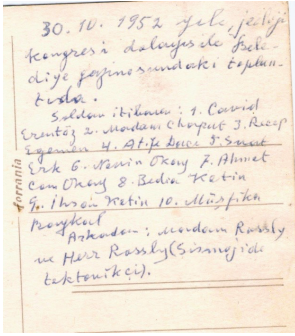 30.10.1952 yılı, jeoloji
kongresi dolayısile Bele-
diye gazinosundaki toplan-
tıda.
Soldan itibaren: 1. Cavid
Erentöz 2. Madam Chaput 3. Recep
Egemen 4. Atife 5. Suat
Erk 6. Nevin Okay 7. Ahmet
Can Okay 8. Bedia Ketin
9. İhsan Ketin 10. Müşfika
Arkadan: Madam Rassly
ve Herr Rassly (Sismoji de
tektonikçi).
ferrania